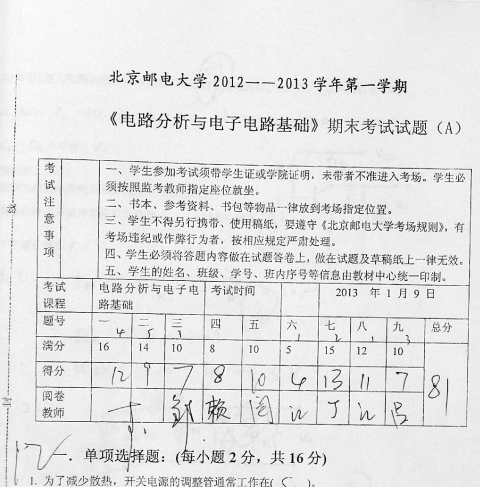 北京邮电大学 2012——2013 学年第一学期
《电路分析与电子电路基础》期末考试试题（A）
考试注意事项
一、学生参加考试须带学生证或学院证明，未带者不准进入考场。学生必
须按照监考教师指定座位就坐。
二、书本、参考资料、书包等物品一律放到考场指定位置。
三、学生不得另行携带、使用稿纸，要遵守《北京邮电大学考场规则》，有
考场违纪或作弊行为者，按相应规定严肃处理。
四、学生必须将答题内容做在试题答卷上，做在试题及草稿纸上一律无效。
五、学生的姓名、班级、学号、班内序号等信息由教材中心统一印制。
考试课程 电路分析与电子电路基础 考试时间 2013 年 1 月 9 日
题号 一 二 三 四 五 六 七 八 九 总分
满分 16 14 10 8 10 5 15 12 10
得分 12 9 7 8 10 4 13 11 7 81
阅卷教师
12 一. 单项选择题: (每小题 2 分，共 16 分)
1. 为了减少散热，开关电源的调整管通常工作在( C ).